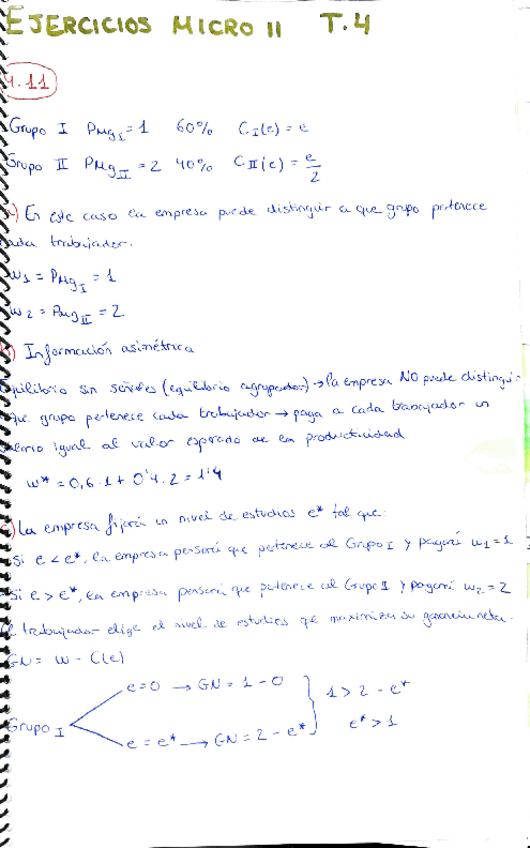 EJERCICIOS MICRO II T.4
4.11
Grupo I PMgI = 1 60% CI(e) = e
Grupo II PMgII = 2 40% CII(e) = e/2
a) En este caso la empresa puede distinguir a que grupo pertenece
cada trabajador.
w1 = PMgI = 1
w2 = PMgII = 2
b) Información asimétrica
equilibrio sin señales (equilibrio agrupador) → la empresa NO puede distinguir
que grupo pertenece cada trabajador → paga a cada trabajador un
salario igual al valor esperado de la productividad
w* = 0,6 · 1 + 0'4 · 2 = 1'4
c) La empresa fijará un nivel de estudios e* tal que:
Si e < e*, la empresa pensará que pertenece al Grupo I y pagará w1 = 1
Si e > e*, la empresa pensará que pertenece al Grupo II y pagará w2 = 2
El trabajador elige el nivel de estudios que maximiza su ganancia neta.
GN = w - C(e)
e = 0 → GN = 1 - 0
1 > 2 - e*
Grupo I
e* > 1
e = e* → GN = 2 - e*